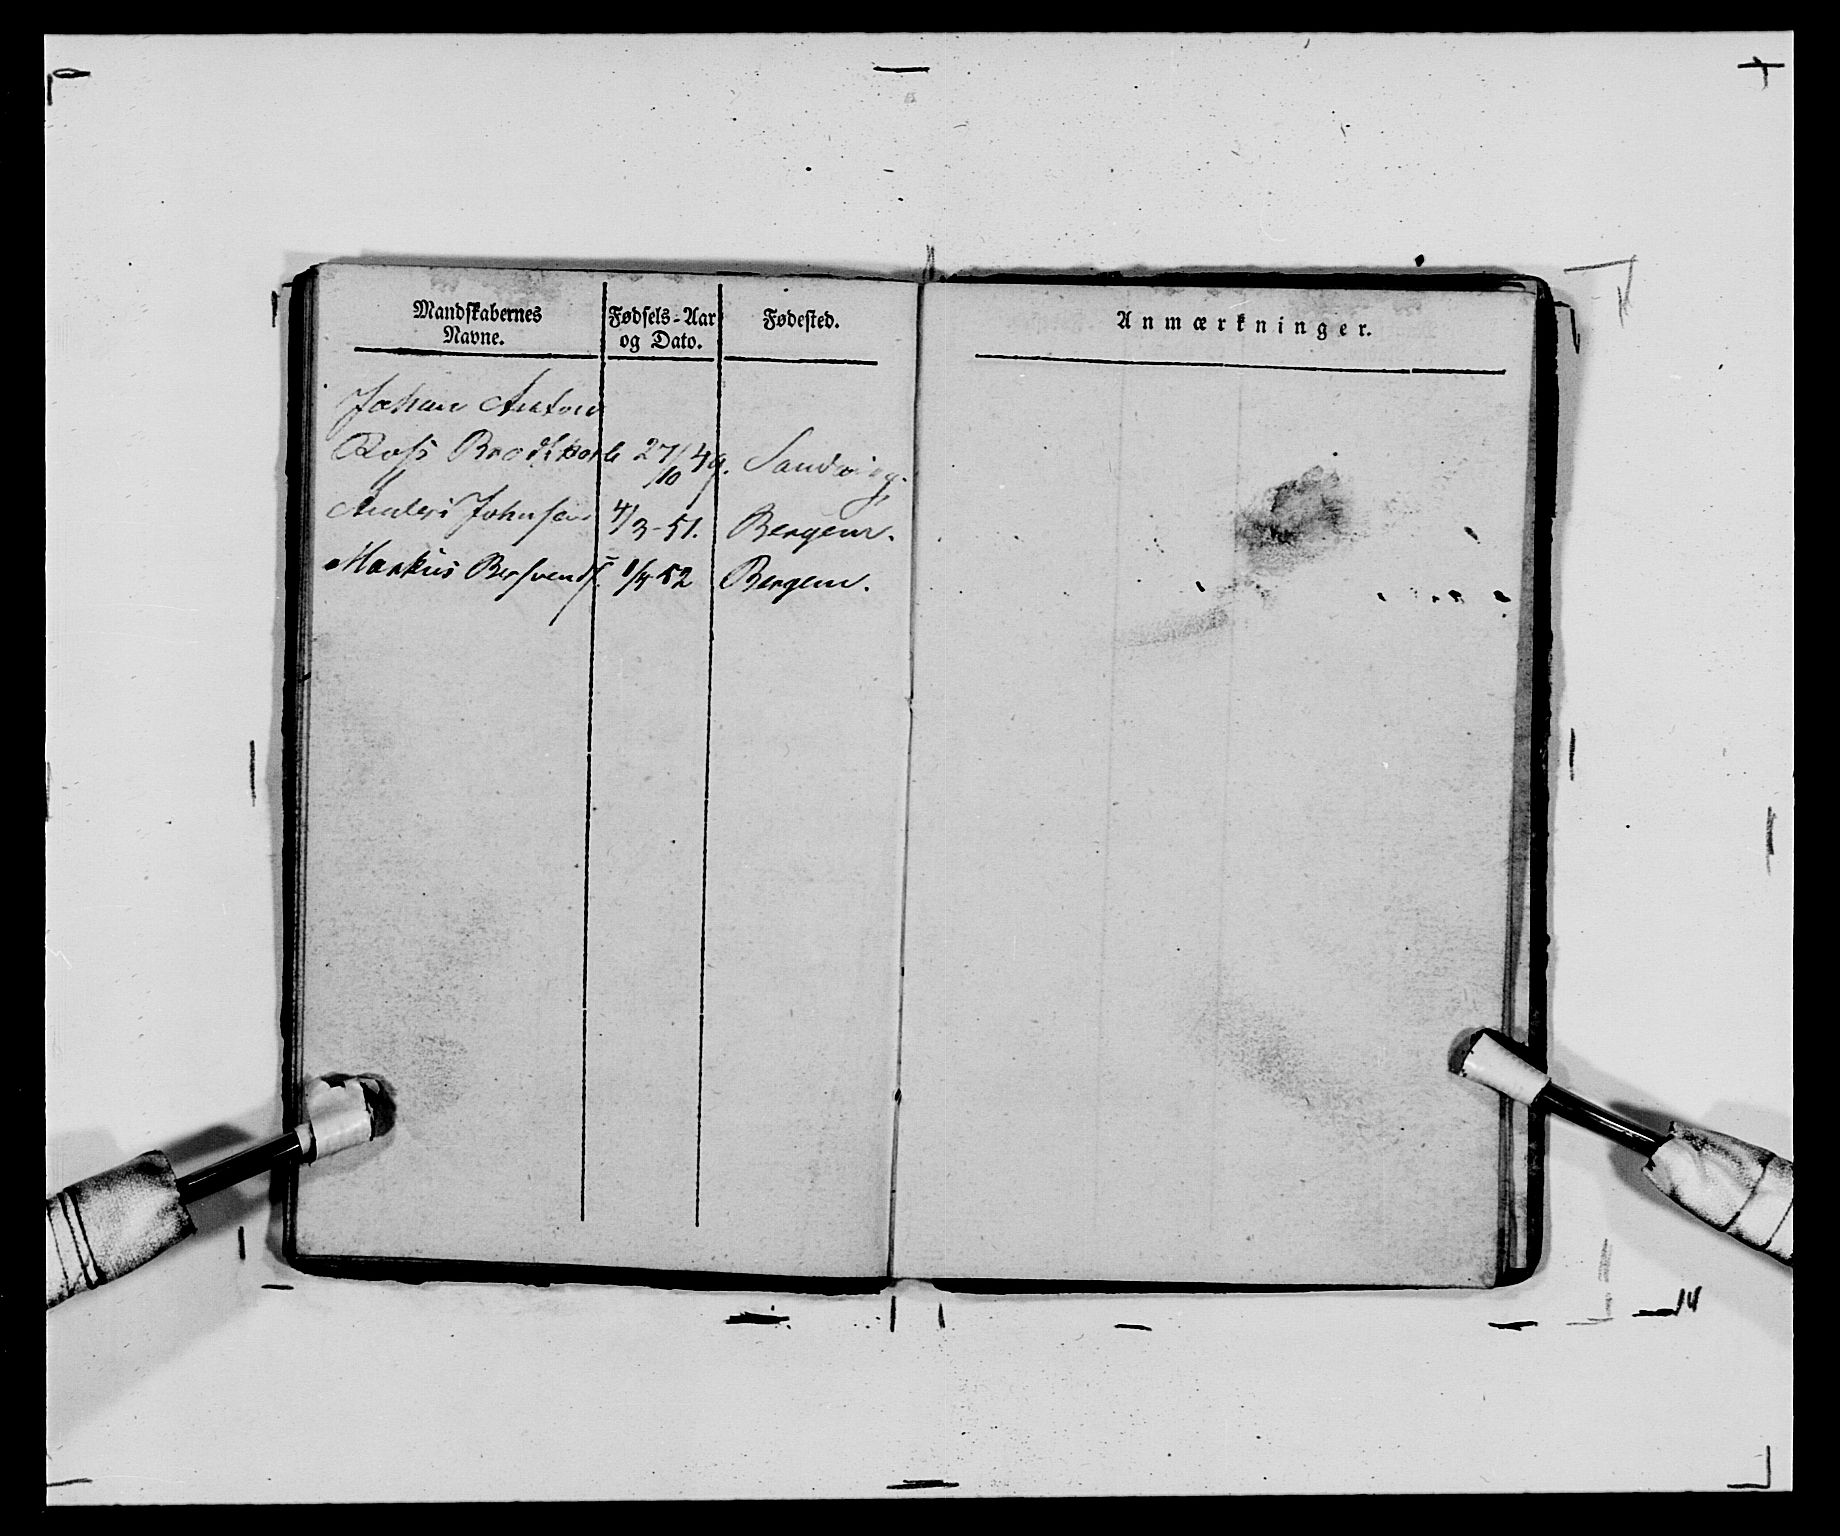 Mandskabernes Navne.
Fødsels-Aar og Dato.
Fødested.
Anmærkninger.
Johan Anton
Ross Brodtkorb 27/10 49. Sandvig.
Anders Johnsen 4/3-51. Bergen.
Markus Bersvends. 1/4 52 Bergen.
14